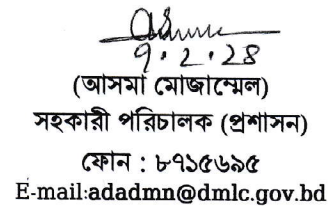 ৭.2.28
(আসমা মোজাম্মেল)
সহকারী পরিচালক (প্রশাসন)
ফোন : ৮৭১৫৬৯৫
E-mail:adadmn@dmlc.gov.bd